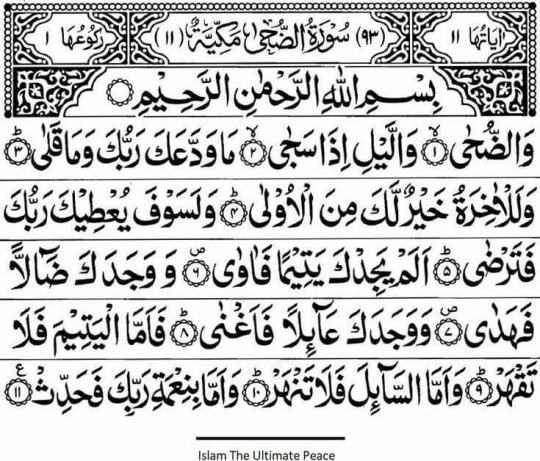 اٰیاتُهَا ١١ (٩٣) سُوْرَةُ الضُّحٰى مَكِّيَّةٌ (١١) رُكُوْعُهَا ١
بِسْمِ اللّٰهِ الرَّحْمٰنِ الرَّحِيْمِ
وَالضُّحٰىۙ‏ ١ وَالَّيْلِ اِذَا سَجٰىۙ‏ ٢ مَا وَدَّعَكَ رَبُّكَ وَمَا قَلٰىؕ‏ ٣
وَلَلْاٰخِرَةُ خَيْرٌ لَّكَ مِنَ الْاُوْلٰىؕ‏ ٤ وَلَسَوْفَ يُعْطِيْكَ رَبُّكَ
فَتَرْضٰىؕ‏ ٥ اَلَمْ يَجِدْكَ يَتِيْمًا فَاٰوٰى۪‏ ٦ وَوَجَدَكَ ضَآلًّا
فَهَدٰى۪‏ ٧ وَوَجَدَكَ عَآئِلًا فَاَغْنٰىؕ‏ ٨ فَاَمَّا الْيَتِيْمَ فَلَا
تَقْهَرْؕ‏ ٩ وَاَمَّا السَّآئِلَ فَلَا تَنْهَرْؕ‏ ١٠ وَاَمَّا بِنِعْمَةِ رَبِّكَ فَحَدِّثْ ١١ ع
Islam The Ultimate Peace